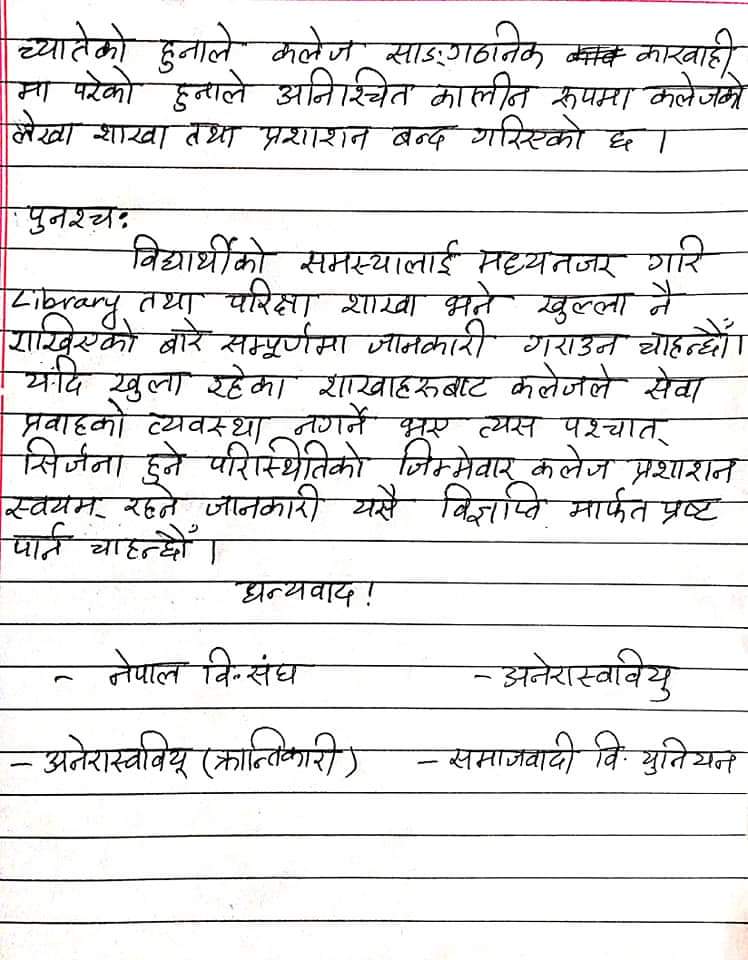 च्यातेको हुनाले कलेज साङ्गठानिक कारवाही
मा परेको हुनाले अनिश्चित कालीन रूपमा कलेजको
लेखा शाखा तथा प्रशाशन बन्द गरिएको छ ।
पुनश्चः
विद्यार्थीको समस्यालाई मध्यनजर गरि
Library तथा परिक्षा शाखा भने खुल्ला नै
राखिएको बारे सम्पूर्णमा जानकारी गराउन चाहन्छौं।
यदि खुला रहेका शाखाहरूबाट कलेजले सेवा
प्रवाहको व्यवस्था नगर्ने भए त्यस पश्चात्
सिर्जना हुने परिस्थितिको जिम्मेवार कलेज प्रशाशन
स्वयम् रहने जानकारी यसै विज्ञप्ति मार्फत प्रष्ट
पार्न चाहन्छौँ ।
धन्यवाद !
- नेपाल वि.संघ - अनेरास्ववियु
- अनेरास्ववियू (क्रान्तिकारी) - समाजवादी वि. युनियन